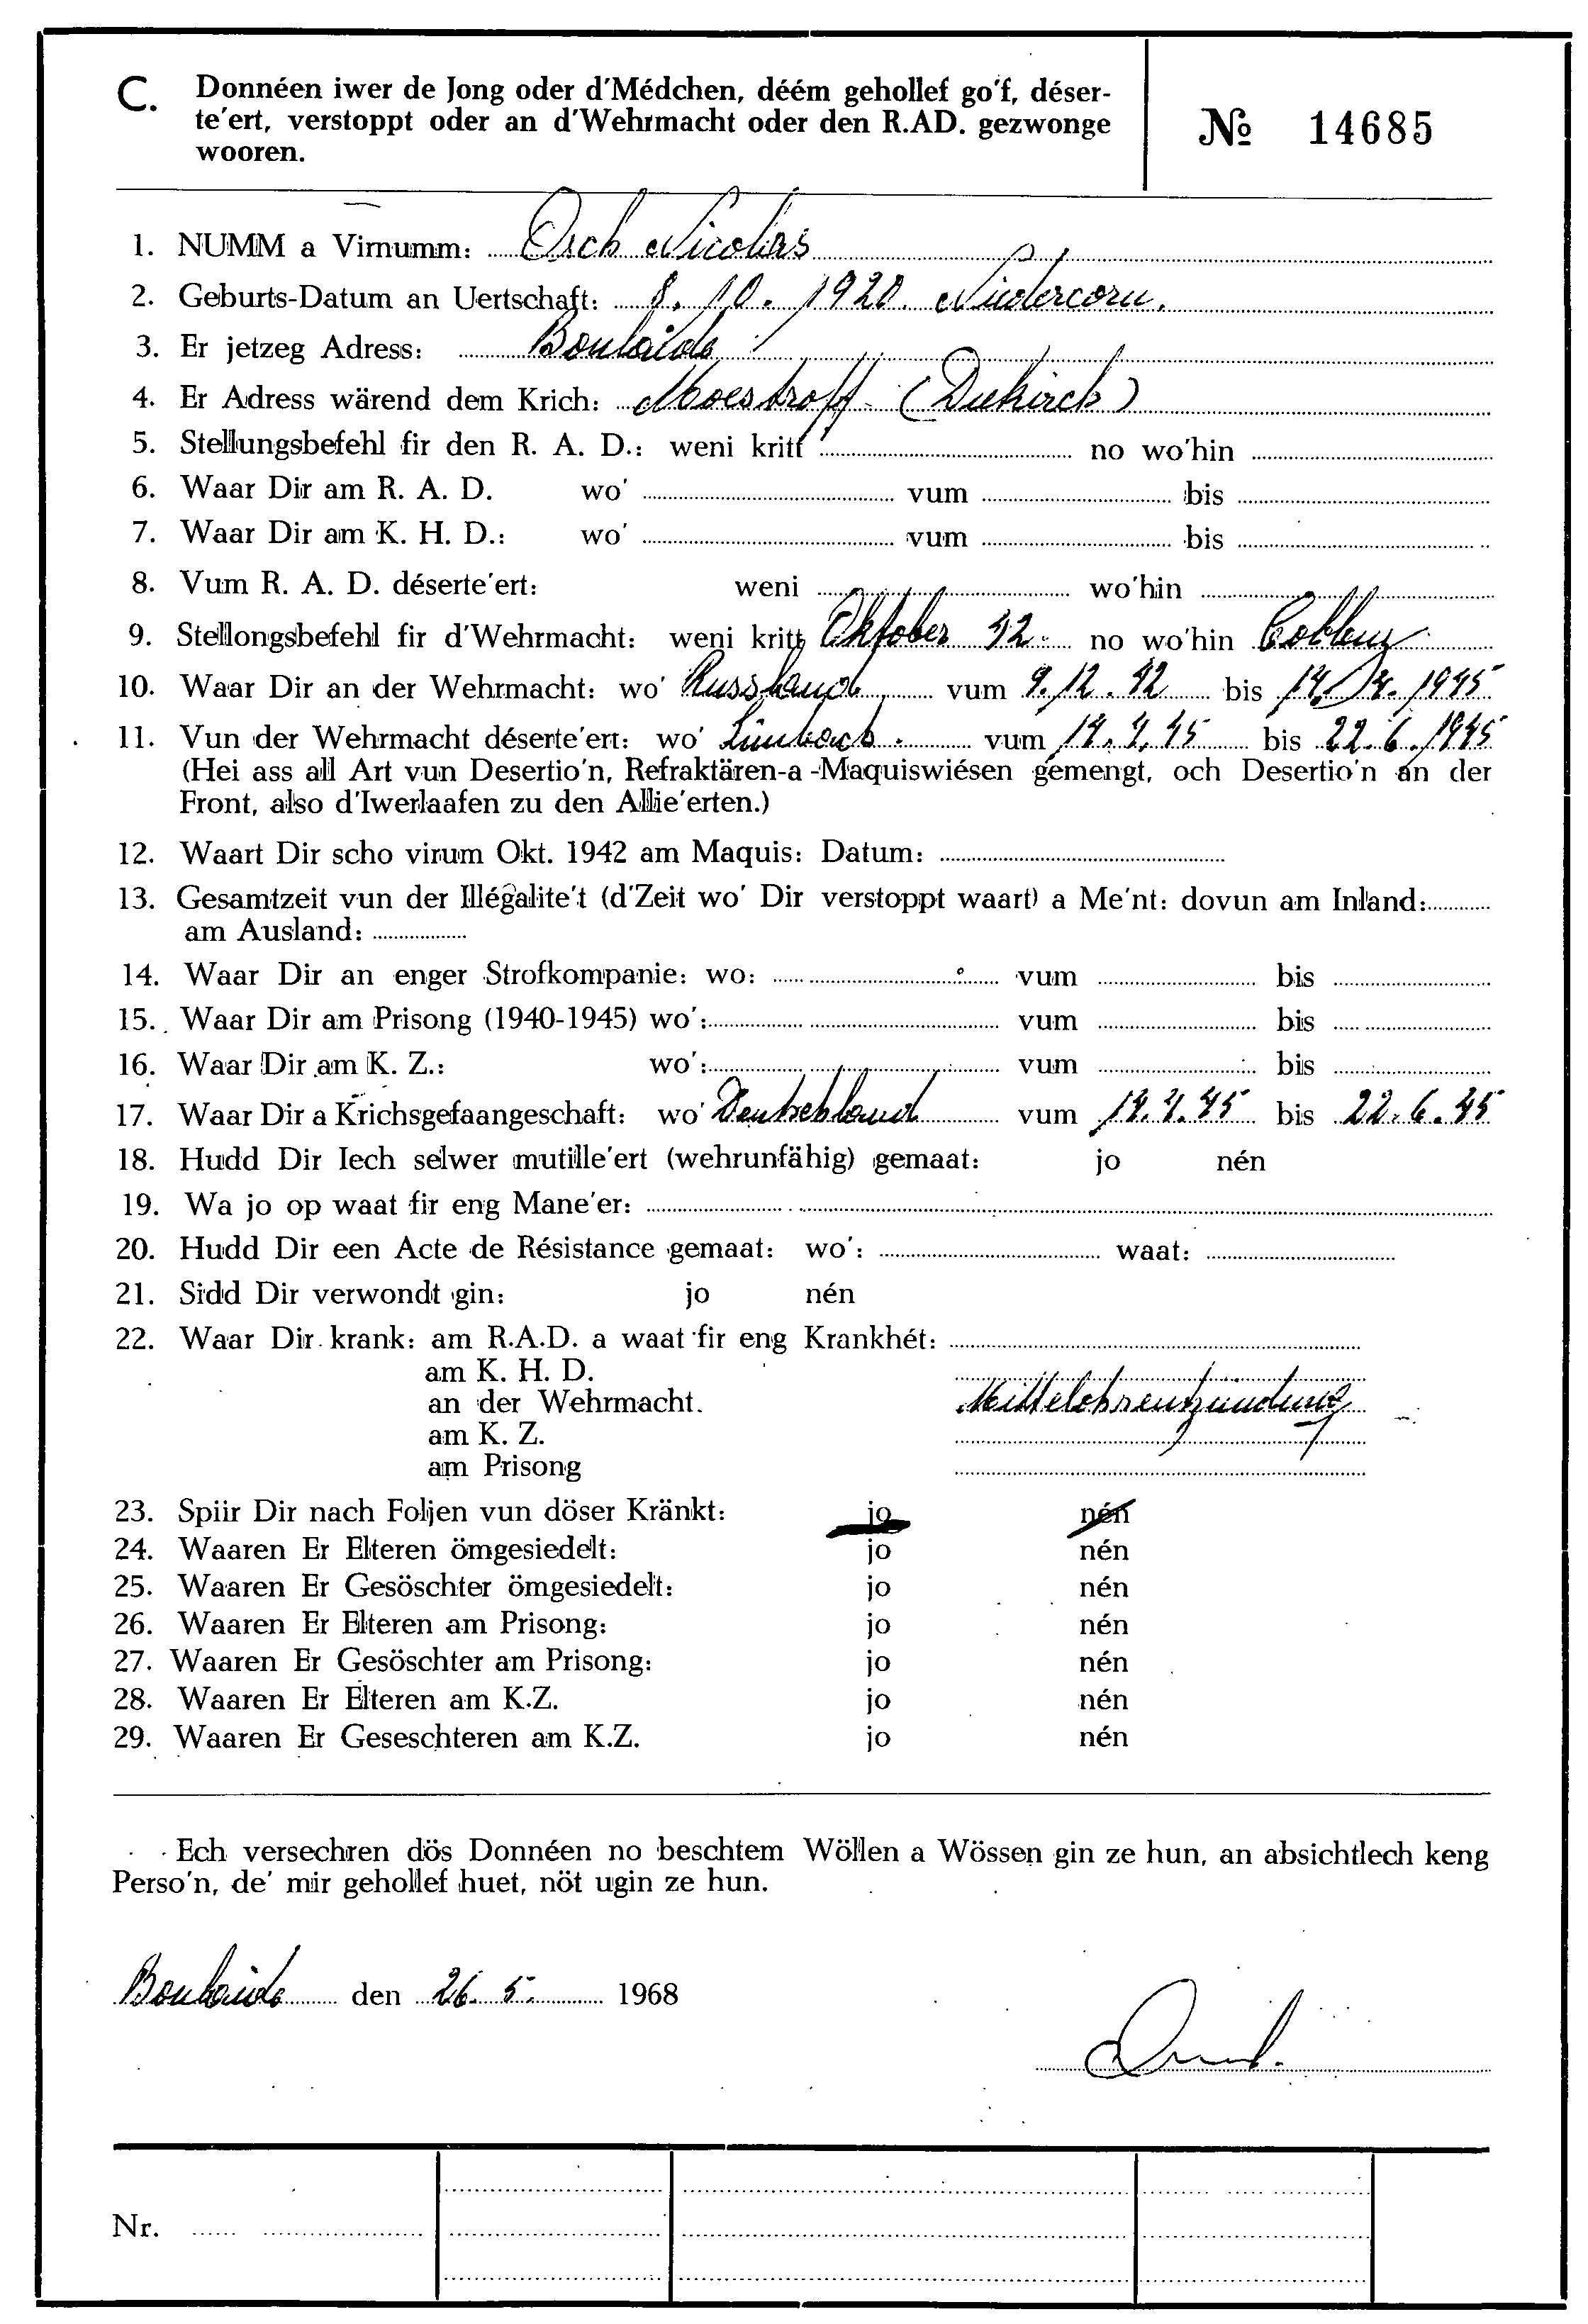 C. Donnéen iwer de Jong oder d'Médchen, déém gehollef go'f, déser-
te'ert, verstoppt oder an d'Wehrmacht oder den R.AD. gezwonge
wooren.
№ 14685
1. NUMM a Virnumm: Osch Nicolas
2. Geburts-Datum an Uertschaft: 8. 10. 1920. Niedercorn.
3. Er jetzeg Adress: Boulaide
4. Er Adress wärend dem Krich: Moestroff (Diekirch)
5. Stellungsbefehl fir den R. A. D.: weni kritt no wo'hin
6. Waar Dir am R. A. D. wo' vum bis
7. Waar Dir am K. H. D.: wo' vum bis
8. Vum R. A. D. déserte'ert: weni wo'hin
9. Stellongsbefehl fir d'Wehrmacht: weni kritt Oktober 42. no wo'hin Coblenz
10. Waar Dir an der Wehrmacht: wo' Russland vum 9.12.42 bis 14. 4. 1945
11. Vun der Wehrmacht déserte'ert: wo' Limbach. vum 14.4.45 bis 22.6.1945
(Hei ass all Art vun Desertio'n, Refraktären-a -Maquiswiésen gemengt, och Desertio'n an der
Front, also d'Iwerlaafen zu den Allie'erten.)
12. Waart Dir scho virum Okt. 1942 am Maquis: Datum:
13. Gesamtzeit vun der Illégalite't (d'Zeit wo' Dir verstoppt waart) a Me'nt: dovun am Inland:
am Ausland:
14. Waar Dir an enger Strofkompanie: wo: vum bis
15. Waar Dir am Prisong (1940-1945) wo': vum bis
16. Waar Dir am K. Z.: wo': vum bis
17. Waar Dir a Krichsgefaangeschaft: wo' Deutschland vum 14.4.45 bis 22.6.45
18. Hudd Dir Iech selwer mutille'ert (wehrunfähig) gemaat: jo nén
19. Wa jo op waat fir eng Mane'er:
20. Hudd Dir een Acte de Résistance gemaat: wo': waat:
21. Sidd Dir verwondt gin: jo nén
22. Waar Dir krank: am R.A.D. a waat fir eng Krankhét:
am K. H. D.
an der Wehrmacht. Mittelohrentzündung
am K. Z.
am Prisong
23. Spiir Dir nach Foljen vun döser Kränkt: jo nén
24. Waaren Er Elteren ömgesiedelt: jo nén
25. Waaren Er Gesöschter ömgesiedelt: jo nén
26. Waaren Er Elteren am Prisong: jo nén
27. Waaren Er Gesöschter am Prisong: jo nén
28. Waaren Er Elteren am K.Z. jo nén
29. Waaren Er Geseschteren am K.Z. jo nén
Ech versechren dös Donnéen no beschtem Wöllen a Wössen gin ze hun, an absichtlech keng
Perso'n, de' mir gehollef huet, nöt ugin ze hun.
Boulaide den 26. 5. 1968
Nr.